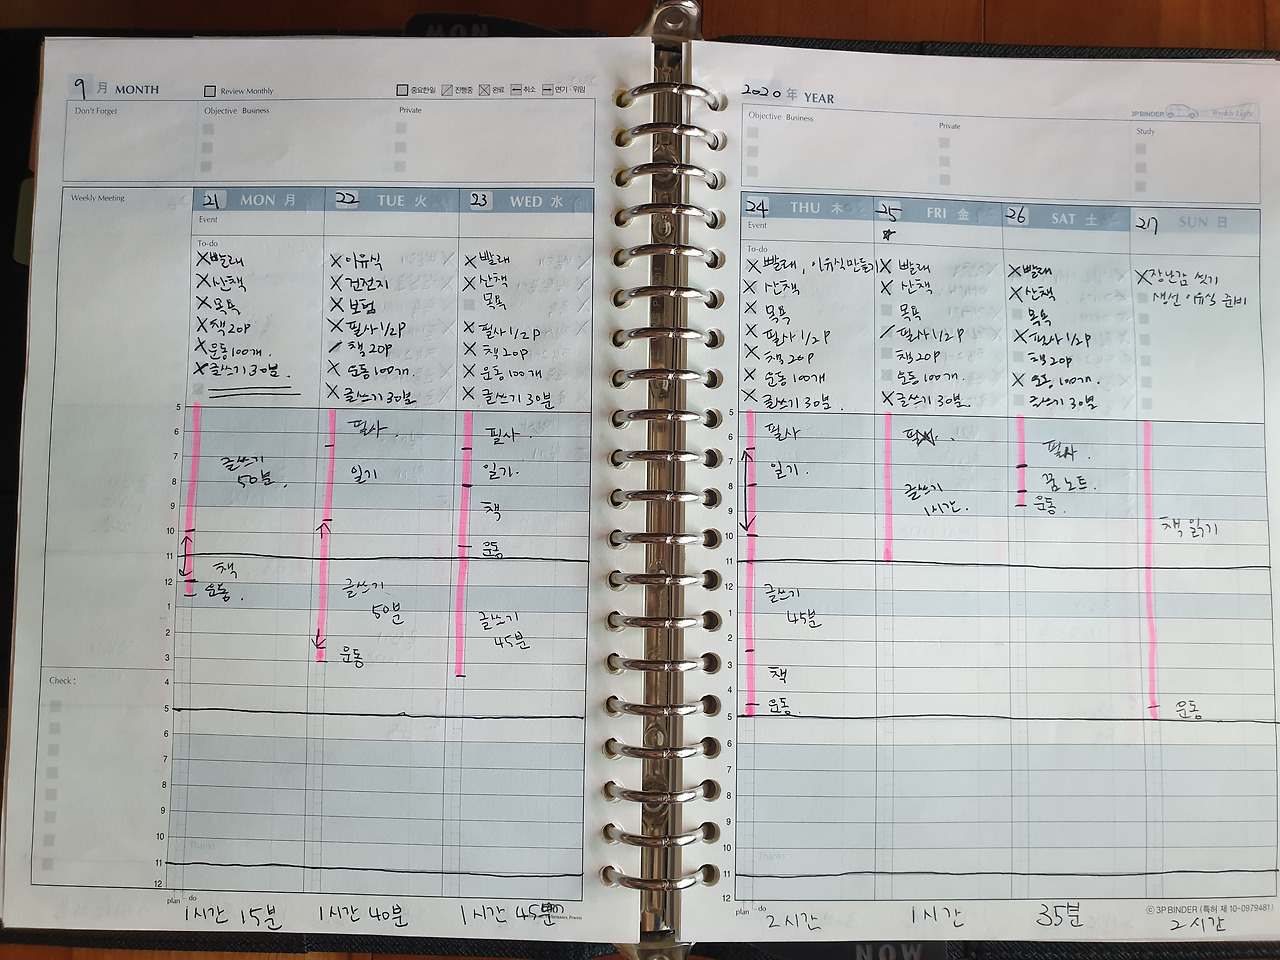 NOW
9 月 MONTH
Review Monthly
중요한일 진행중 완료 취소 연기·위임
Don't Forget
Objective Business
Private
Weekly Meeting
21 MON 月
22 TUE 火
23 WED 水
Event
To-do
X빨래
X산책
X목욕
X책 20p
X운동 100개.
X글쓰기 30분.
X이유식
X건전지
X보험
X필사 1/2p
책 20p
X운동 100개.
X글쓰기 30분
X빨래
X산책
목욕
X필사 1/2p
X책 20p
X운동 100개
X글쓰기 30분
5
6
7
8
9
10
11
12
1
2
3
4
5
6
7
8
9
10
11
12
글쓰기
50분.
책
운동.
필사.
일기
글쓰기
50분
운동
필사.
일기.
책
운동
글쓰기
45분
Check :
Thanks
plan do
1시간 15분
1시간 40분
1시간 45분
2020 年 YEAR
3P BINDER Weekly Light
Objective Business
Private
Study
24 THU 木
25 FRI 金
26 SAT 土
27 SUN 日
Event
To-do
X빨래, 이유식만들기
X산책
X목욕
X필사 1/2p
X책 20p
X운동 100개
X글쓰기 30분.
X빨래
X산책
목욕
필사 1/2p
책 20p
운동 100개.
X글쓰기 30분.
X빨래
X산책
목욕
X필사 1/2p
책 20p
X운동 100개.
글쓰기 30분
X장난감 씻기
생선 이유식 준비
5
6
7
8
9
10
11
12
1
2
3
4
5
6
7
8
9
10
11
12
필사
일기.
글쓰기
45분
책
운동.
필사.
글쓰기
1시간.
필사.
꿈노트.
운동.
책 읽기
운동
Thanks
plan do
2시간
1시간
35분
2시간
© 3P BINDER (특허 제 10-0979481)
NOW